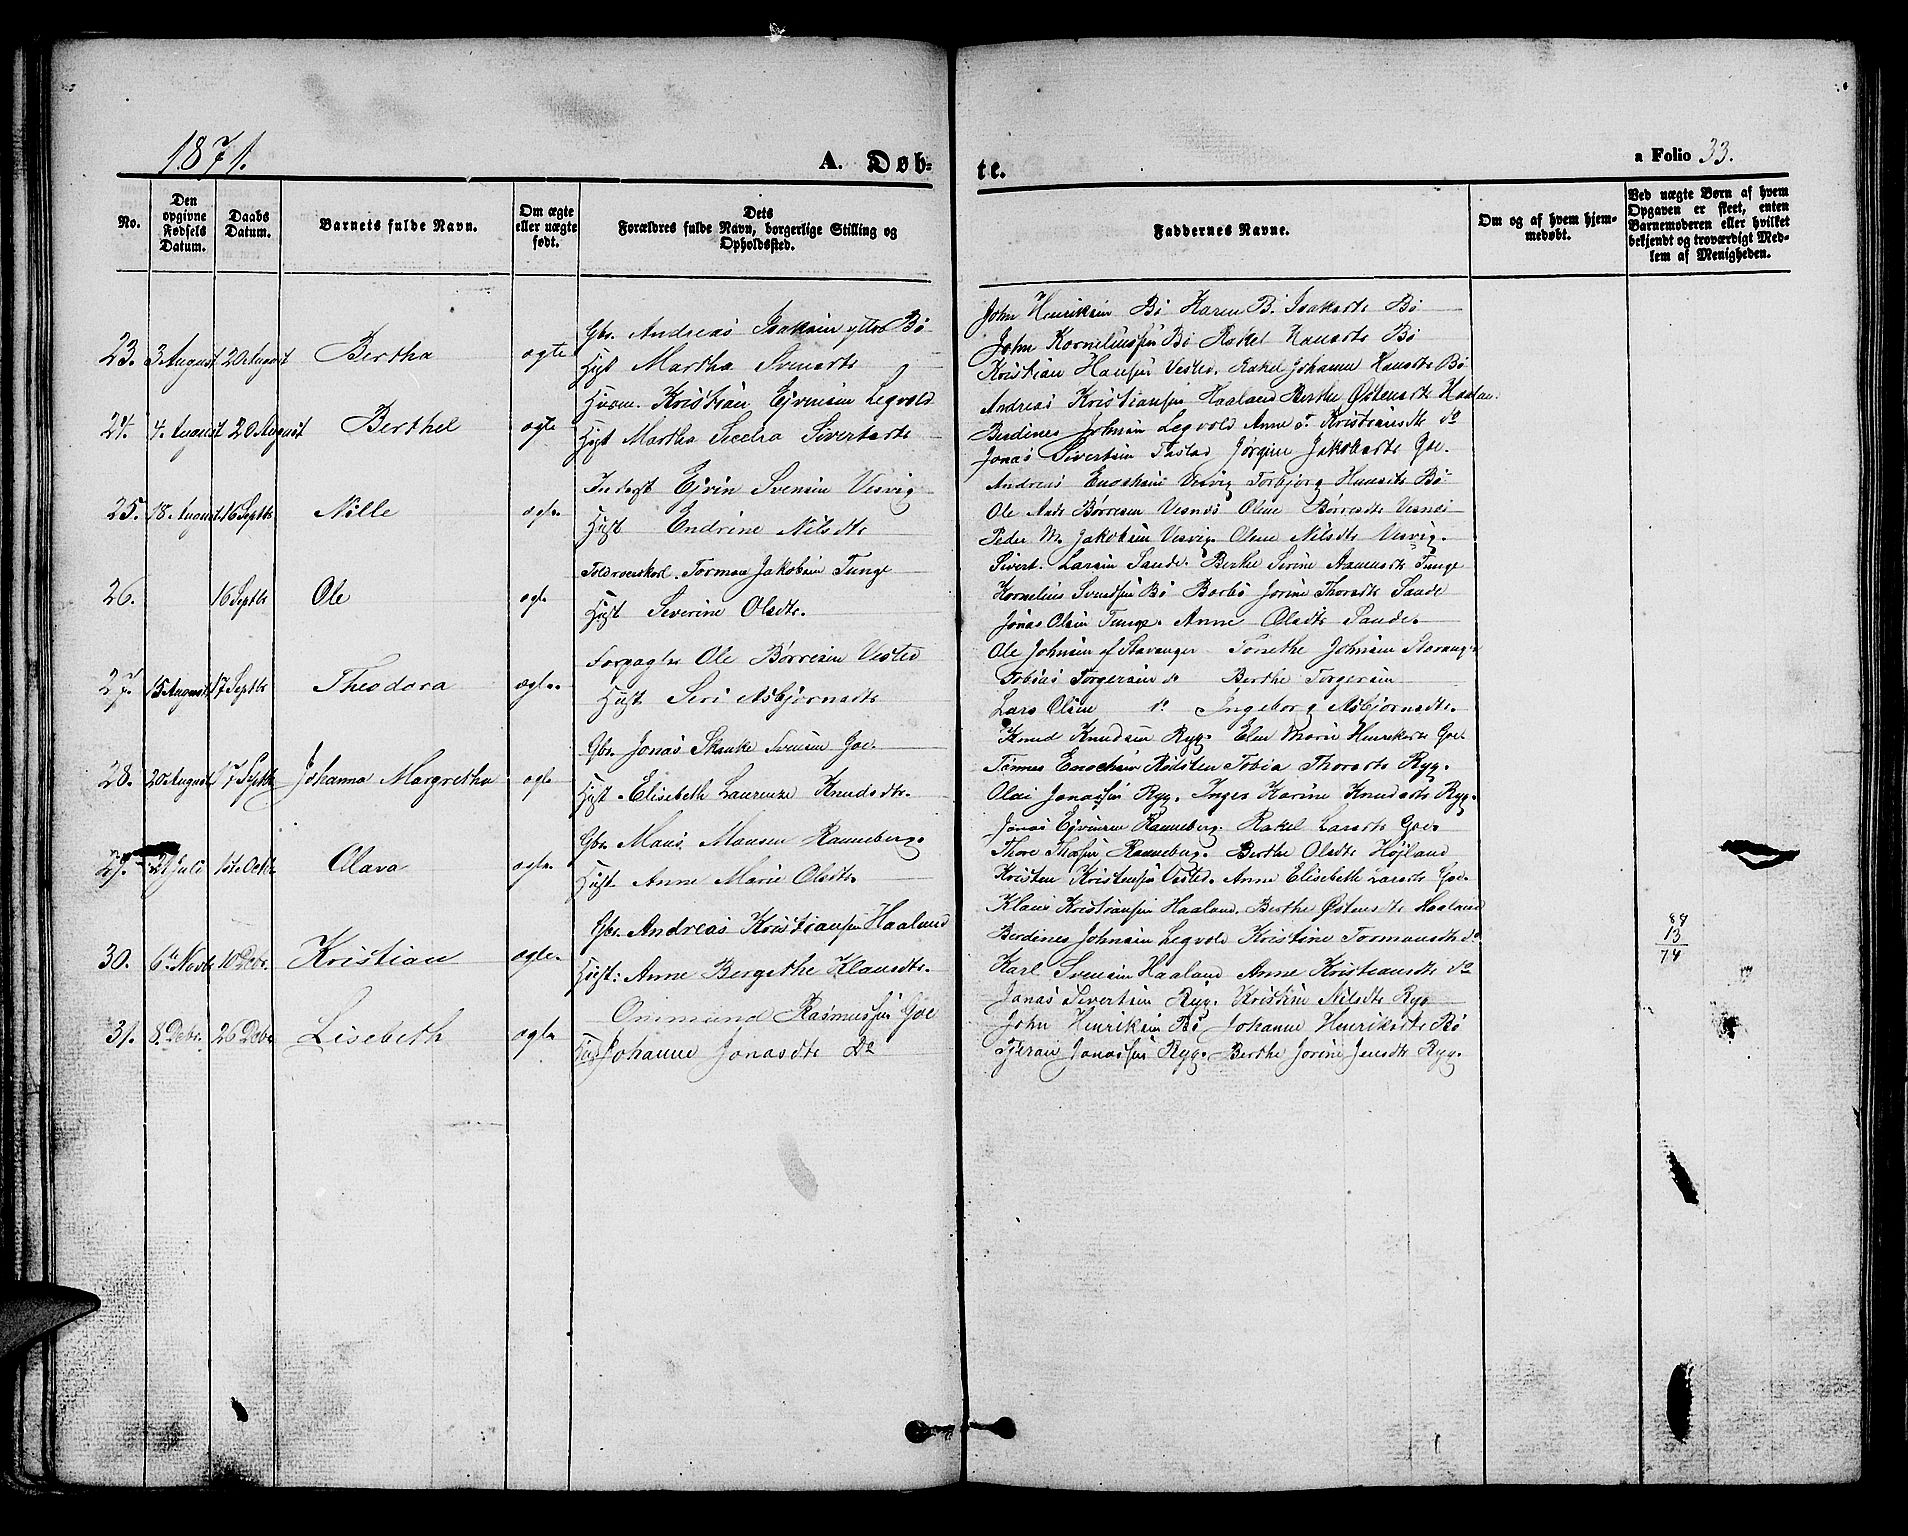 1871.
A. Døb-
te.
a Folio 33.
No.
Den opgivne Fødsels Datum.
Daabs Datum.
Barnets fulde Navn.
Om ægte eller uægte født.
Dets Forældres fulde Navn, borgerlige Stilling og Opholdssted.
Faddernes Navne.
Om og af hvem hjem-
medøbt.
Ved uægte Børn af hvem
Opgaven er skeet, enten
Barnemoderen eller hvilket
bekjendt og troværdigt Med-
lem af Menigheden.
23. 3 August 20 August Bertha ægte
Gbr. Andreas Isaksen ytter Bø
Hust Martha Svensdtr
John Henriksen Bø Karen B. Isaksdtr Bø
John Korneliussen Bø Rakel Hansdtr Bø
Kristian Hansen Vested. Rakel Johanne Hansdtr Bø
24. 4. August 20 August Berthel ægte
Huusm. Kristian Ejvensen Legvold
Hust Martha Sicelia Sivertsdtr
Andreas Kristiansen Haaland Berthe Østensdtr Haaland
Berdines Johnsen Legvold Anne T. Kristiansdtr do
Jonas Sivertsen Tastad Jørgine Jakobsdtr Goe.
25. 18. August 16 Septbr Nille ægte
Inderst Ejvin Svensen Vesvig
Hust Endrine Nilsdtr
Andreas Enoksen Vesvig Torbjørg Hansdtr Bø
Ole Ands Børresen Vesnes Oline Børresdtr Vesnes
Peder M. Jakobsen Vesvig. Oline Nilsdtr Vesvig.
26. 16 Septbr Ole ægte
Toldroerskarl. Tormon Jakobsen Tunge
Hust Severine Olsdtr.
Sivert Larsen Sande. Berthe Serine Aamundsdtr Tunge
Kornelius Svendsen Bø Barbo Jorine Thorsdtr Sande
Jonas Olsen Tunge. Anne Olsdtr Sande.
27. 15 August 17 Septbr Theodora ægte.
Forpagter Ole Børresen Vested
Hust Seri Asbjørnsdtr
Ole Johnsen af Stavanger Tonethe Johnsen Stavanger
Tobias Torgersen do Berthe Torgersen
Lars Olsen do Ingeborg Asbjørnsdtr.
28. 20 August 17 Septbr Johanna Margretha ægte
Gbr. Jonas Skanke Svensen Goe.
Hust Elisabeth Laurenze Knudsdtr.
Knud Knudsen Ryg. Elen Marie Henriksdtr Goe.
Tønnes Enochsen Rødsten Tobia Thorsdtr Ryg.
Olai Jonassen Ryg. Inger Karine Knudsdtr Ryg.
29. 21 Juli 1ste Octbr. Olava ægte.
Gbr. Maus Mausen Ranneberg.
Hust. Anne Marie Olsdtr.
Jonas Ejvensen Ranneberg. Rakel Larsdtr Goe
Thore Thorsen Ranneberg. Berthe Olsdtr Højland
Kristen Kristensen Vested. Anne Elisebeth Larsdtr Goe.
30. 6te Novbr 10 Decbr. Kristian ægte.
Gbr. Andreas Kristiansen Haaland
Hust: Anne Bergithe Klausdtr.
Klaus Kristiansen Haaland. Berthe Østensdtr Haaland
Berdines Johnsen Legvold Kristine Tormonsdtr do
Karl Svensen Haaland Anne Kristiansdtr do
88
13
74
31. 8 Debr. 26 Debr Lisebeth ægte
Ommund Rasmussen Goe
Johanne Jonasdtr Do
Jonas Sivertsen Ryg. Kristine Nilsdtr Ryg
John Henriksen Bø Johanne Henriksdtr Bø
Tjeran Jonassen Ryg. Berthe Jorine Jensdtr Ryg.